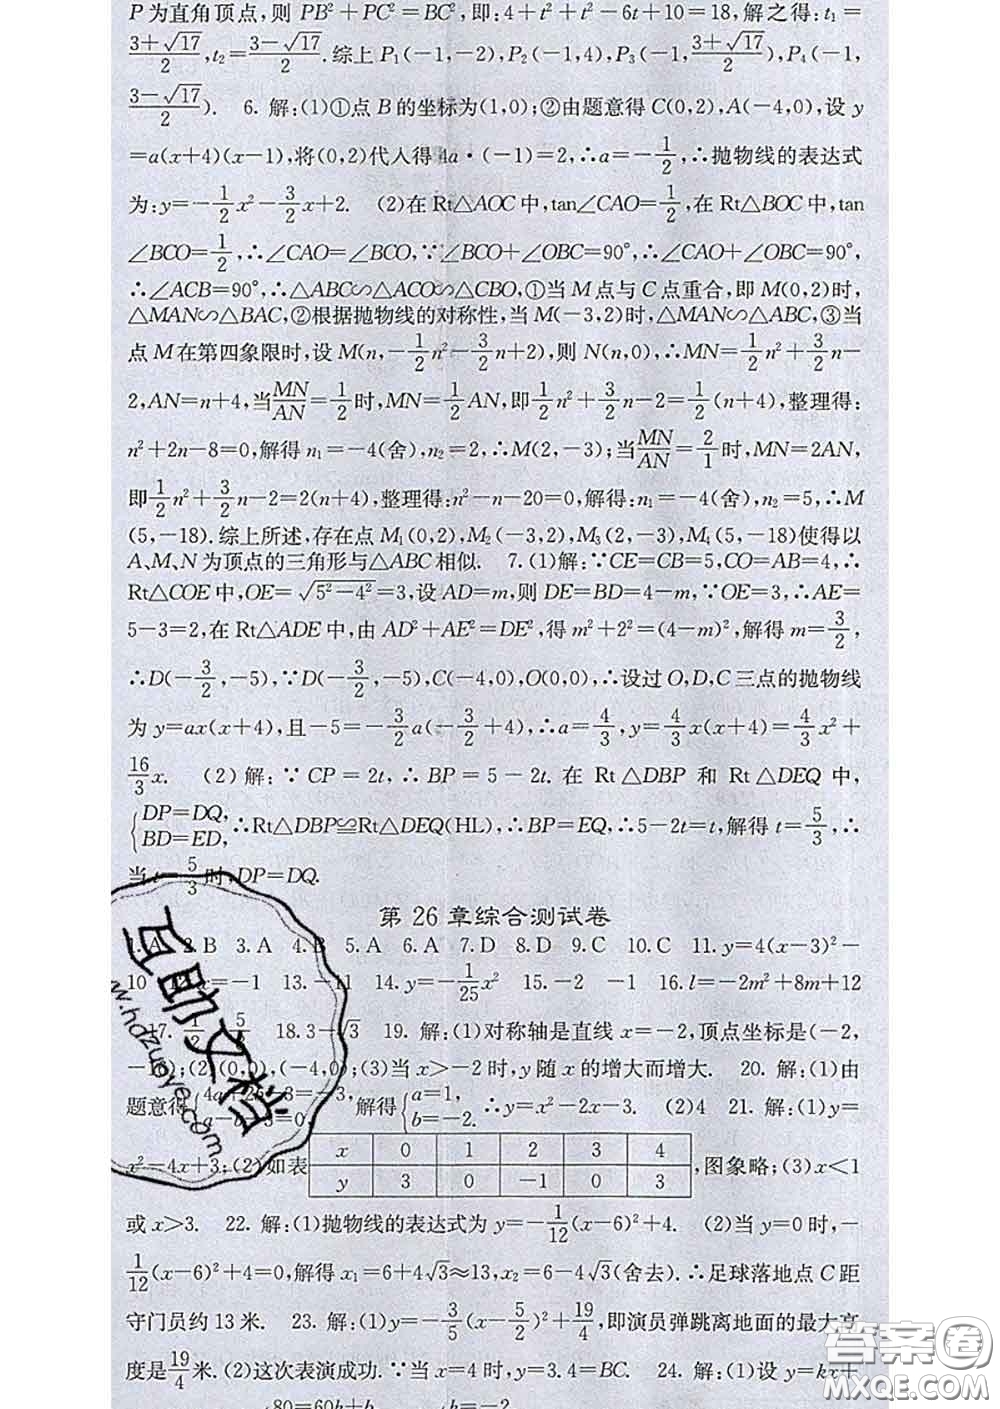 P为直角顶点,则 PB²+PC²=BC²,即:4+t²+t²-6t+10=18,解之得:t₁=
(3+√17)/2,t₂=(3-√17)/2.综上 P₁(-1,-2),P₂(-1,4),P₃(-1,(3+√17)/2),P₄(-1,
(3-√17)/2). 6. 解:(1)①点 B 的坐标为(1,0);②由题意得 C(0,2),A(-4,0),设 y
=a(x+4)(x-1),将(0,2)代人得 4a·(-1)=2,∴a=-1/2,∴抛物线的表达式
为:y=-1/2x²-3/2x+2. (2)在 Rt△AOC 中,tan∠CAO=1/2,在 Rt△BOC 中,tan
∠BCO=1/2,∴∠CAO=∠BCO,∵∠BCO+∠OBC=90°,∴∠CAO+∠OBC=90°,
∴∠ACB=90°,∴△ABC∽△ACO∽△CBO,①当 M 点与 C 点重合,即 M(0,2)时,
△MAN∽△BAC,②根据抛物线的对称性,当 M(-3,2)时,△MAN∽△ABC,③当
点 M 在第四象限时,设 M(n,-1/2n²-3/2n+2),则 N(n,0),∴MN=1/2n²+3/2n-
2,AN=n+4,当MN/AN=1/2时,MN=1/2AN,即1/2n²+3/2n-2=1/2(n+4),整理得:
n²+2n-8=0,解得 n₁=-4(舍),n₂=2,∴M(2,-3);当MN/AN=2/1时,MN=2AN,
即1/2n²+3/2n-2=2(n+4),整理得:n²-n-20=0,解得:n₁=-4(舍),n₂=5,∴M
(5,-18).综上所述,存在点 M₁(0,2),M₂(-3,2),M₃(2,-3),M₄(5,-18)使得以
A、M、N 为顶点的三角形与△ABC 相似. 7.(1)解:∵CE=CB=5,CO=AB=4,∴
Rt△COE 中,OE=√(5²-4²)=3,设 AD=m,则 DE=BD=4-m,∵OE=3,∴AE=
5-3=2,在 Rt△ADE 中,由 AD²+AE²=DE²,得 m²+2²=(4-m)²,解得 m=3/2,
∴D(-3/2,-5),∵D(-3/2,-5),C(-4,0),O(0,0),∴设过 O,D,C 三点的抛物线
为 y=ax(x+4),且-5=-3/2a(-3/2+4),∴a=4/3,y=4/3x(x+4)=4/3x²+
16/3x. (2)解:∵CP=2t,∴BP=5-2t.在 Rt△DBP 和 Rt△DEQ 中,
{DP=DQ, BD=ED, ∴Rt△DBP≌Rt△DEQ(HL),∴BP=EQ,∴5-2t=t,解得 t=5/3,∴
当 t=5/3时,DP=DQ.
第 26 章综合测试卷
1.A 2.B 3.A 4.B 5.A 6.A 7.D 8.D 9.C 10.C 11.y=4(x-3)²-
10 12.x=-1 13.-11 14.y=-1/25x² 15.-2 -1 16.l=-2m²+8m+12
17. 1/2 5/ 18.3-√3 19. 解:(1)对称轴是直线 x=-2,顶点坐标是(-2,
(2)(0,0),(-4,0);(3)当 x>-2 时,y 随 x 的增大而增大. 20. 解:(1)由
题意得 3=-3, 3=0, 解得{a=1, b=-2. ∴y=x²-2x-3. (2)4 21. 解:(1)y=
x²-4x+3;(2)如表 x 0 1 2 3 4 y 3 0 -1 0 3 ,图象略;(3)x<1
或 x>3. 22. 解:(1)抛物线的表达式为 y=-1/12(x-6)²+4. (2)当 y=0 时,-
1/12(x-6)²+4=0,解得 x₁=6+4√3≈13,x₂=6-4√3(舍去).∴足球落地点 C 距
守门员约 13 米. 23. 解:(1)y=-3/5(x-5/2)²+19/4,即演员弹跳离地面的最大高
度是19/4米.(2)这次表演成功.∵当 x=4 时,y=3.4=BC. 24. 解:(1)设 y=kx+
80=60k+b k=-2
互助文档
w.hdzuoye.com
答案圈
MXQE.COM